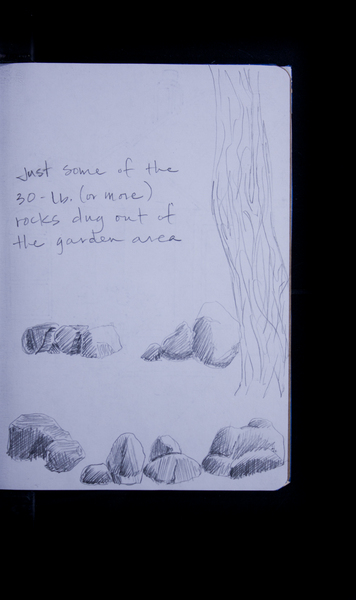 Just some of the
30-lb. (or more)
rocks dug out of
the garden area